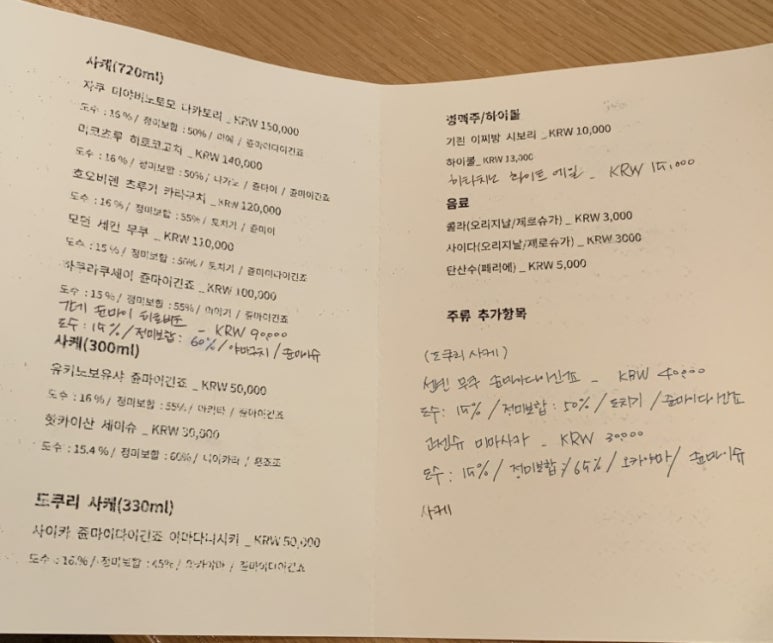 사케(720ml)
자쿠 미야비노토모 나카토리 _ KRW 150,000
도수 : 16 % / 정미보합 : 50% / 미에 / 쥰마이다이긴죠
미코츠루 히로코고치 _ KRW 140,000
도수 : 16 % / 정미보합 : 50% / 나가노 / 쥰마이 / 쥰마이긴죠
호오비덴 츠루기 카라구치 _ KRW 120,000
도수 : 16 % / 정미보합 : 55% / 토치기 / 쥰마이
모던 세인 무쿠 _ KRW 110,000
도수 : 15 % / 정미보합 : 50% / 토치기 / 쥰마이다이긴죠
하쿠라쿠세이 쥰마이긴죠 _ KRW 100,000
도수 : 15 % / 정미보합 : 55% / 미야기 / 쥰마이긴죠
쥰마이 _ KRW 90,000
도수 : 15% / 정미보합 : 60% / 야마구치 / 쥰마이슈
사케(300ml)
유키노보유샤 쥰마이긴죠 _ KRW 50,000
도수 : 16 % / 정미보합 : 55% / 아키타 / 쥰마이긴죠
핫카이산 세이슈 _ KRW 30,000
도수 : 15.4 % / 정미보합 : 60% / 니이가타 / 혼죠조
도쿠리 사케(330ml)
사이카 쥰마이다이긴죠 야마다니시키 _ KRW 50,000
도수 : 16.% / 정미보합 : 45% / 쥰마이다이긴죠
병맥주/하이볼
기린 이찌방 시보리 _ KRW 10,000
하이볼_ KRW 13,000
히타치노 화이트 에일 _ KRW 15,000
음료
콜라(오리지날/제로슈가) _ KRW 3,000
사이다(오리지날/제로슈가) _ KRW 3000
탄산수(페리에) _ KRW 5,000
주류 추가항목
(도쿠리 사케)
세인 무쿠 쥰마이다이긴죠 _ KRW 40,000
도수 : 15% / 정미보합 : 50% / 토치기 / 쥰마이다이긴죠
고젠슈 미마사카 _ KRW 30000
도수 : 15% / 정미보합 : 65% / 오카야마 / 쥰마이슈
사케